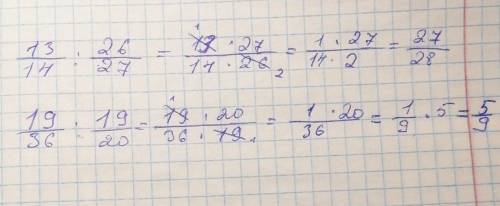 13/14 : 26/27 = (13 · 27)/(14 · 26) = (1 · 27)/(14 · 2) = 27/28
19/36 : 19/20 = (19 · 20)/(36 · 19) = (1 · 20)/36 = 1/9 · 5 = 5/9